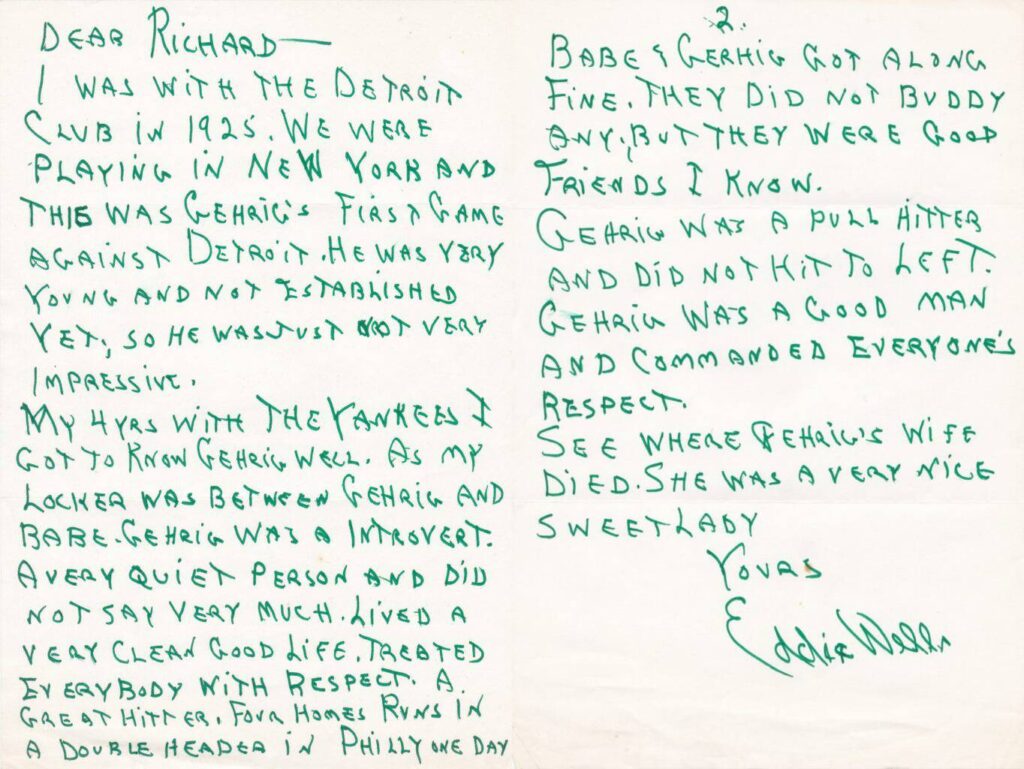 DEAR RICHARD—
I WAS WITH THE DETROIT
CLUB IN 1925. WE WERE
PLAYING IN NEW YORK AND
THIS WAS GEHRIG'S FIRST GAME
AGAINST DETROIT. HE WAS VERY
YOUNG AND NOT ESTABLISHED
YET, SO HE WAS JUST NOT VERY
IMPRESSIVE.
MY 4 YRS WITH THE YANKEES I
GOT TO KNOW GEHRIG WELL. AS MY
LOCKER WAS BETWEEN GEHRIG AND
BABE. GEHRIG WAS A INTROVERT.
A VERY QUIET PERSON AND DID
NOT SAY VERY MUCH. LIVED A
VERY CLEAN GOOD LIFE. TREATED
EVERYBODY WITH RESPECT. A
GREAT HITTER. FOUR HOMES RUNS IN
A DOUBLE HEADER IN PHILLY ONE DAY
2.
BABE & GERHIG GOT ALONG
FINE. THEY DID NOT BUDDY
ANY, BUT THEY WERE GOOD
FRIENDS I KNOW.
GEHRIG WAS A PULL HITTER
AND DID NOT HIT TO LEFT.
GEHRIG WAS A GOOD MAN
AND COMMANDED EVERYONE'S
RESPECT.
SEE WHERE GEHRIG'S WIFE
DIED. SHE WAS A VERY NICE
SWEET LADY
YOURS
Eddie Wells